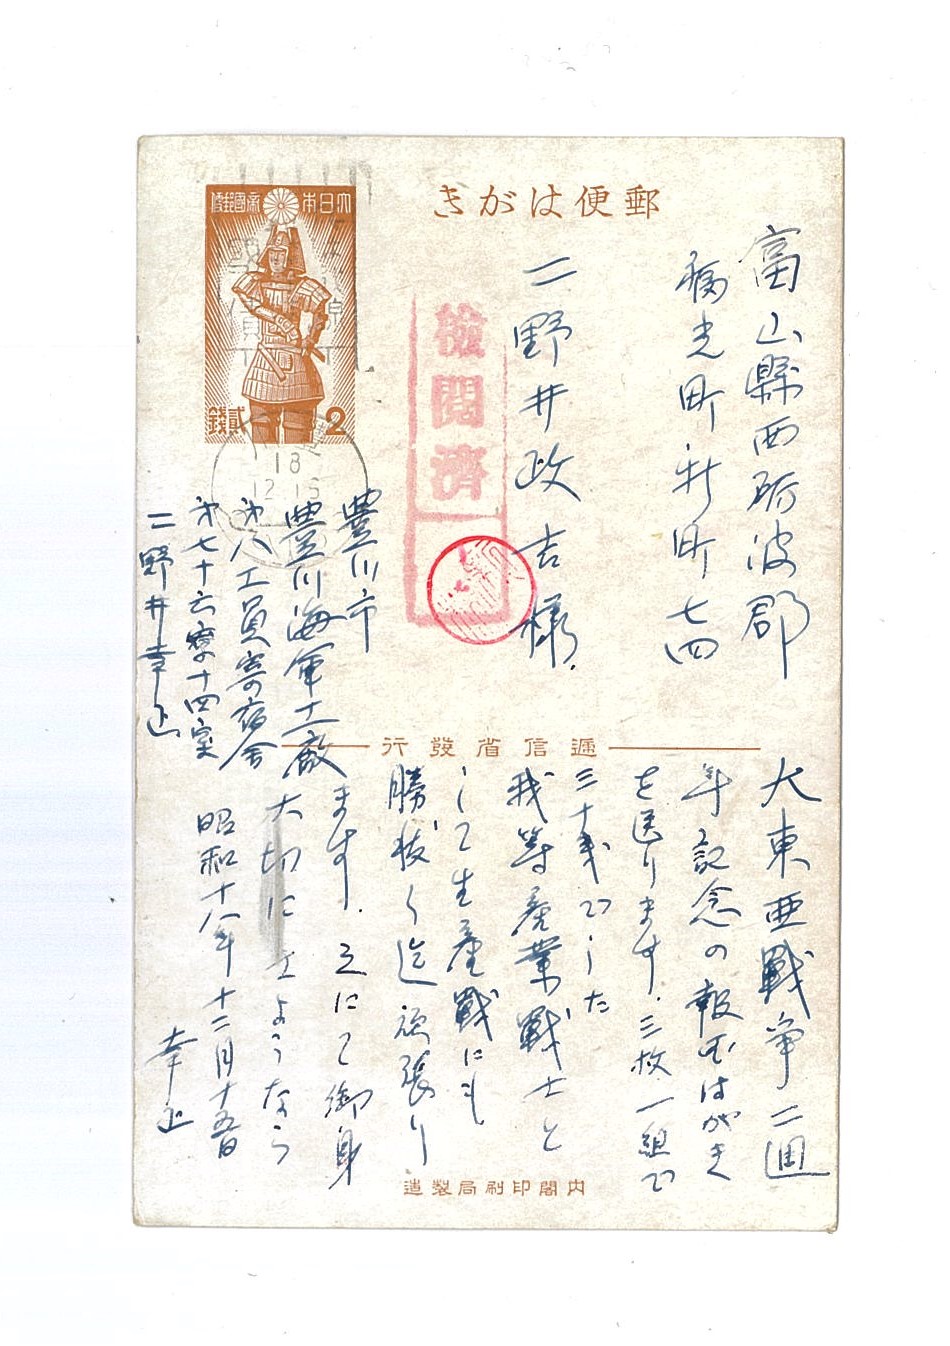 郵便はがき
大日本帝國郵便
貳錢
2
18
12.15
檢閲済
富山縣西砺波郡
福光町新町七四
二野井政吉様
豊川市
豊川海軍工廠
第八工員寄宿舎
第七十六寮十四室
二野井幸正
遞信省發行
大東亜戦争二周
年記念の報国はがき
を送ります。三枚一組で
三十銭でした
我等産業戦士と
して生産戦にも
勝抜く迄頑張り
ます。之にて御身
大切に さようなら
昭和十八年十二月十五日
幸正
内閣印刷局製造